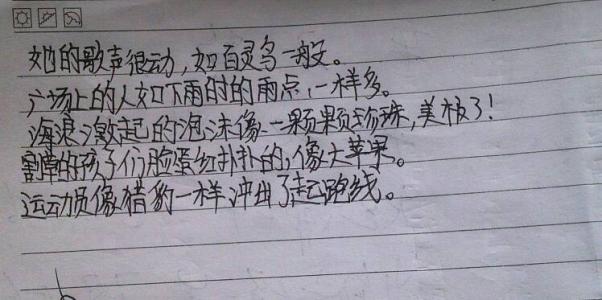 她的歌声很动,如百灵鸟一般。
广场上的人如下雨时的雨点,一样多。
海浪激起的泡沫像一颗颗珍珠,美极了!
的孩子们脸蛋红扑扑的,像大苹果。
运动员像猎豹一样冲出了起跑线。